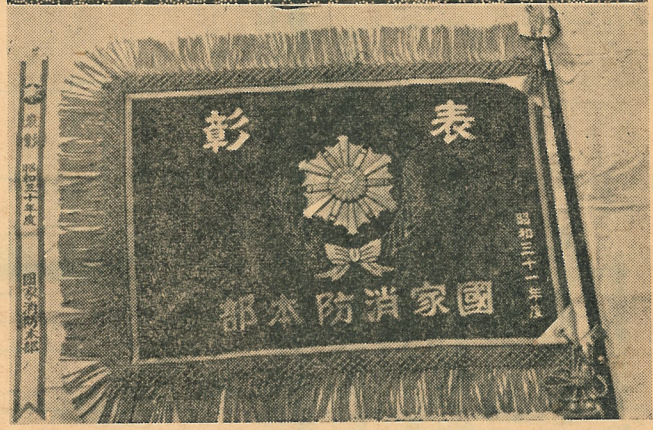 表彰
昭和三十一年度
國家消防本部
表彰 昭和三十年度 國家消防本部